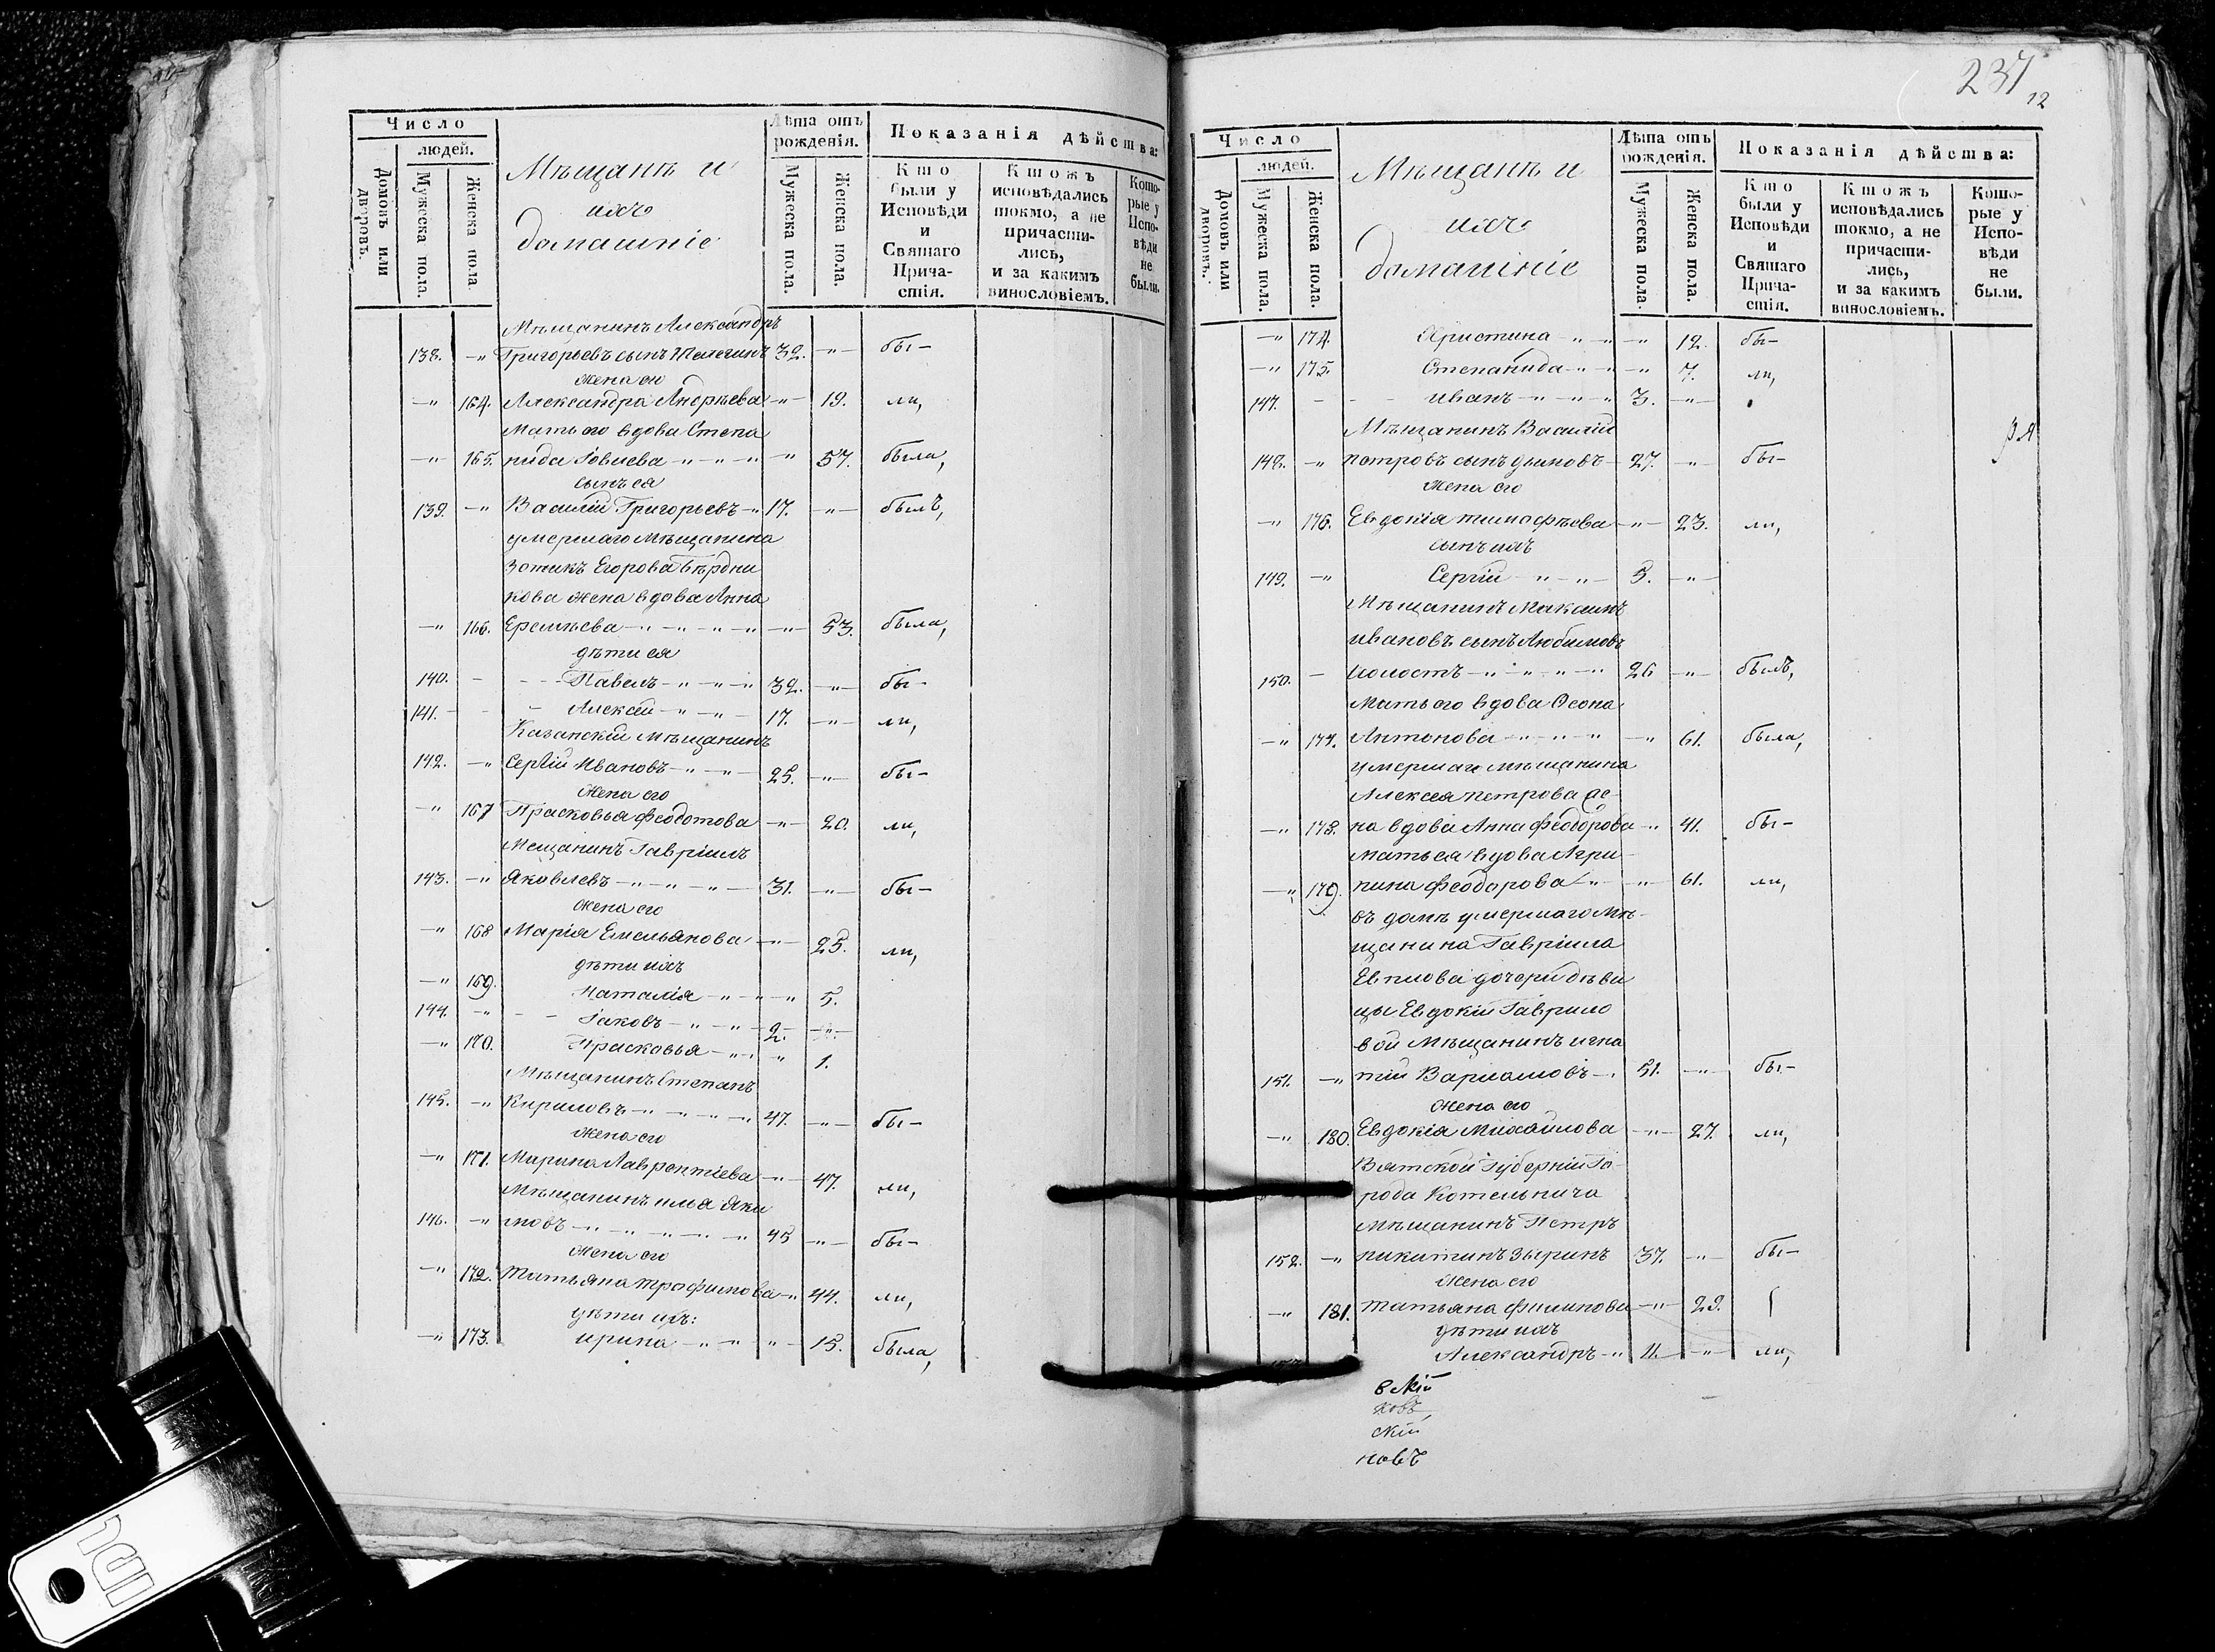 Число
людей.
Домовъ или дворовъ.
Мужеска пола.
Женска пола.
Мѣщанъ и
ихъ
домашніе
Лѣта отъ рожденія.
Мужеска пола.
Женска пола.
Показанія дѣйства:
Кто были у Исповѣди и Святаго Причастія.
Ктожъ исповѣдались токмо, а не причастились, и за какимъ винословіемъ.
Которые у Исповѣди не были.
Мѣщанинъ Александръ
138. -"- Григорьевъ сынъ 32. -"- бы-
жена ею
-"- 164. Александра Андрѣева -"- 19. ли,
Мать его вдова Степа
-"- 165. нида Іовлева -"- 57. была,
сынъ ея
139. -"- Василій Григорьевъ -"- 17. -"- былъ,
умершаго Мѣщанина
Зотикъ Егорова Бѣрдни
кова жена вдова Анна
-"- 166. Еремѣева -"- 53. была,
дѣти ея
140. - Павелъ -"- 32. -"- бы-
141. - Алексѣй -"- 17. -"- ли,
Казанскій мѣщанинъ
142. -"- Сергій Ивановъ -"- 25. -"- бы-
жена его
-"- 167 Прасковья Феодотова -"- 20. ли,
Мещанинъ Гавріилъ
143. -"- Яковлевъ -"- 31. -"- бы-
жена его
-"- 168 Марія Емельянова -"- 25. ли,
дѣти ихъ
-"- 169. Наталія -"- 5.
144. -"- Іаковъ -"- 2. -"-
-"- 170. Прасковья -"- 1.
Мѣщанинъ Степанъ
145. -"- Кириловъ -"- 47. -"- бы-
жена его
-"- 171. Марина Лаврентіева -"- 47. ли,
Мѣщанинъ илья Яки
146. -"- мовъ -"- 45 -"- бы-
жена его
-"- 172. татьяна трофимова -"- 44. ли,
дѣти ихъ:
-"- 173. ирина -"- 15. была,
237
12
Число
людей.
Домовъ или дворовъ.
Мужеска пола.
Женска пола.
Мѣщанъ и
ихъ
домашніе
Лѣта отъ рожденія.
Мужеска пола.
Женска пола.
Показанія дѣйства:
Кто были у Исповѣди и Святаго Причастія.
Ктожъ исповѣдались токмо, а не причастились, и за какимъ винословіемъ.
Которые у Исповѣди не были.
-"- 174. Христина -"- 12. бы-
-"- 175. Степанида -"- 7. ли,
147. - иванъ -"- 3. -"-
Мѣщанинъ Василій
148. -"- петровъ сынъ 27. -"- бы-
жена его
-"- 176. Евдокія тимофѣева -"- 23. ли,
сынъ ихъ
149. -"- Сергій -"- 3. -"-
Мѣщанинъ Максимъ
ивановъ сынъ Любимовъ
150. - холостъ -"- 26 -"- былъ,
Мать его вдова Ѳеона
-"- 177. Антонова -"- 61. была,
умершаго мѣщанина
Алексея петрова же-
-"- 178. на вдова Анна Феодорова -"- 41. бы-
мать ея вдова Агри-
-"- 179. пина Феодорова -"- 61. ли,
въ домѣ умершаго Мѣ-
щанина Гавріила
Евплова дочери дѣви
цы Евдокіи Гаврило
вой Мѣщанинъ игна
151. -"- тій Варламовъ -"- 51. -"- бы-
жена его
-"- 180. Евдокія Михайлова -"- 27. ли,
Вятской Губерніи Го-
рода Котельнича
Мѣщанинъ Петръ
152. -"- никитинъ Зыринъ 37. -"- бы-
жена его
-"- 181. татьяна филипова -"- 29.
дѣти ихъ
Александръ -"- 11. -"- ли,
скій
новъ